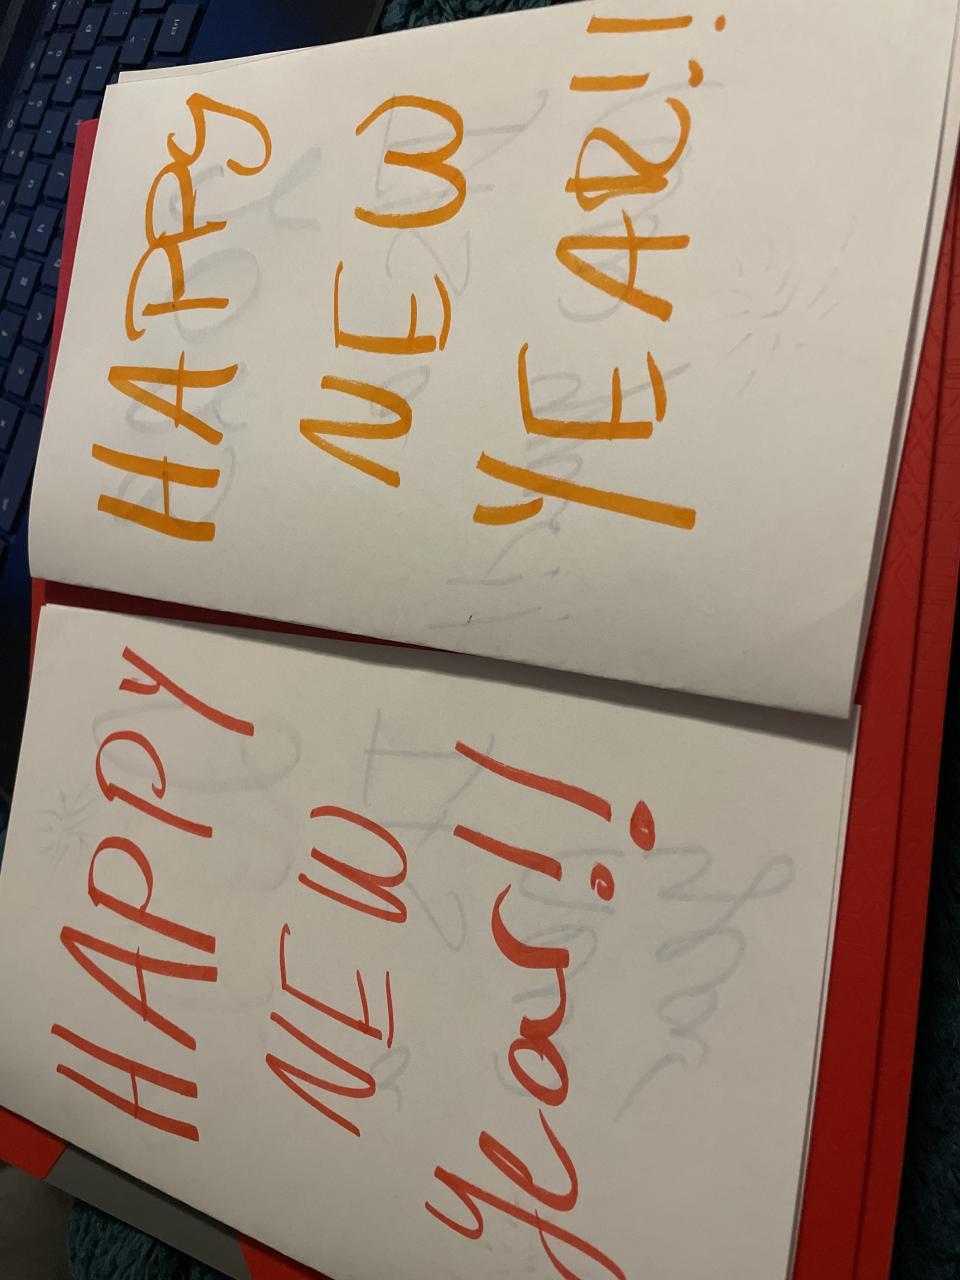 HAPPY
NEW
YEAR!!
HAPPY
NEW
Year!!